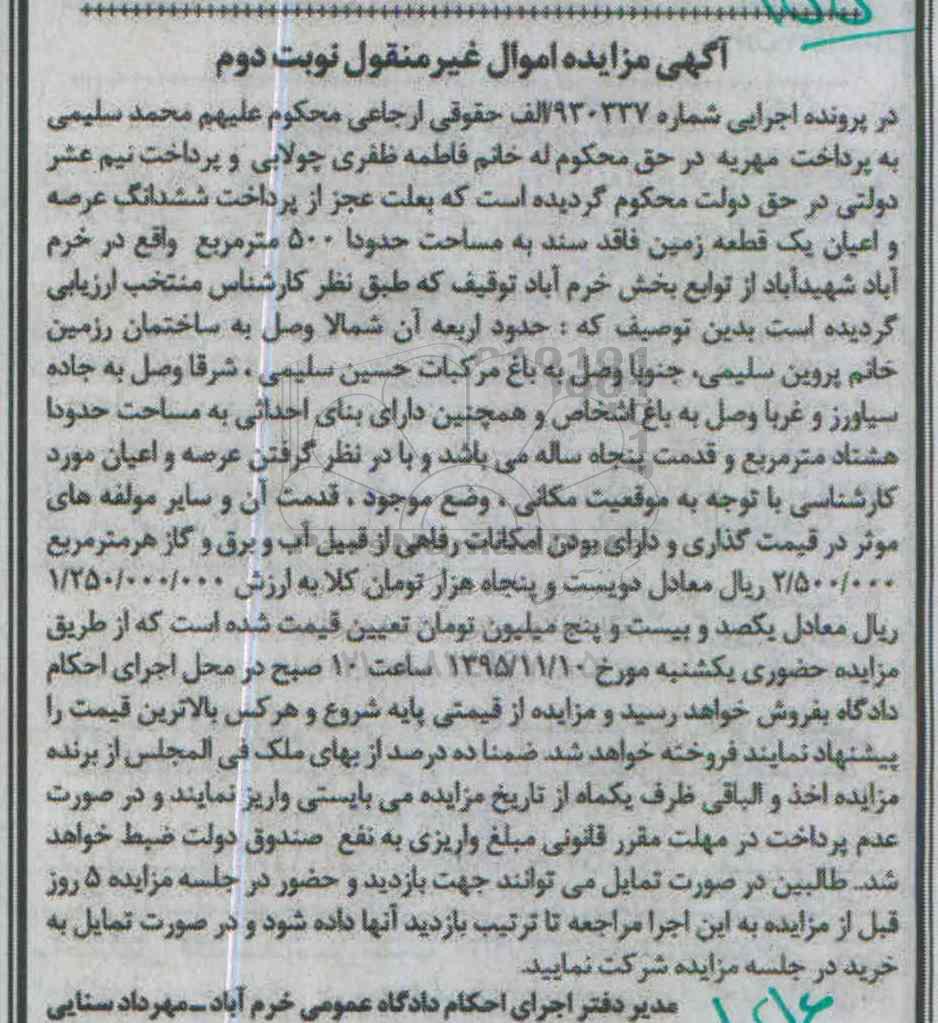 آگهی مزایده اموال غیرمنقول نوبت دوم
در پرونده اجرایی شماره ۹۳۰۳۳۷/الف حقوقی ارجاعی محکوم علیهم محمد سلیمی
به پرداخت مهریه در حق محکوم له خانم فاطمه ظفری چولابی و پرداخت نیم عشر
دولتی در حق دولت محکوم گردیده است که بعلت عجز از پرداخت ششدانگ عرصه
و اعیان یک قطعه زمین فاقد سند به مساحت حدودا ۵۰۰ مترمربع واقع در خرم
آباد شهیدآباد از توابع بخش خرم آباد توقیف که طبق نظر کارشناس منتخب ارزیابی
گردیده است بدین توصیف که : حدود اربعه آن شمالا وصل به ساختمان رزمین
خانم پروین سلیمی، جنوبا وصل به باغ مرکبات حسین سلیمی ، شرقا وصل به جاده
سیاورز و غربا وصل به باغ اشخاص و همچنین دارای بنای احداثی به مساحت حدودا
هشتاد مترمربع و قدمت پنجاه ساله می باشد و با در نظر گرفتن عرصه و اعیان مورد
کارشناسی با توجه به موقعیت مکانی ، وضع موجود ، قدمت آن و سایر مولفه های
موثر در قیمت گذاری و دارای بودن امکانات رفاهی از قبیل آب و برق و گاز هرمترمربع
۲/۵۰۰/۰۰۰ ریال معادل دویست و پنجاه هزار تومان کلا به ارزش ۱/۲۵۰/۰۰۰/۰۰۰
ریال معادل یکصد و بیست و پنج میلیون تومان تعیین قیمت شده است که از طریق
مزایده حضوری یکشنبه مورخ ۱۳۹۵/۱۱/۱۰ ساعت ۱۰ صبح در محل اجرای احکام
دادگاه بفروش خواهد رسید و مزایده از قیمتی پایه شروع و هرکس بالاترین قیمت را
پیشنهاد نمایند فروخته خواهد شد. ضمنا ده درصد از بهای ملک فی المجلس از برنده
مزایده اخذ و الباقی ظرف یکماه از تاریخ مزایده می بایستی واریز نمایند و در صورت
عدم پرداخت در مهلت مقرر قانونی مبلغ واریزی به نفع صندوق دولت ضبط خواهد
شد.. طالبین در صورت تمایل می توانند جهت بازدید و حضور در جلسه مزایده ۵ روز
قبل از مزایده به این اجرا مراجعه تا ترتیب بازدید آنها داده شود و در صورت تمایل به
خرید در جلسه مزایده شرکت نمایید.
مدیر دفتر اجرای احکام دادگاه عمومی خرم آباد ــ مهرداد سنایی